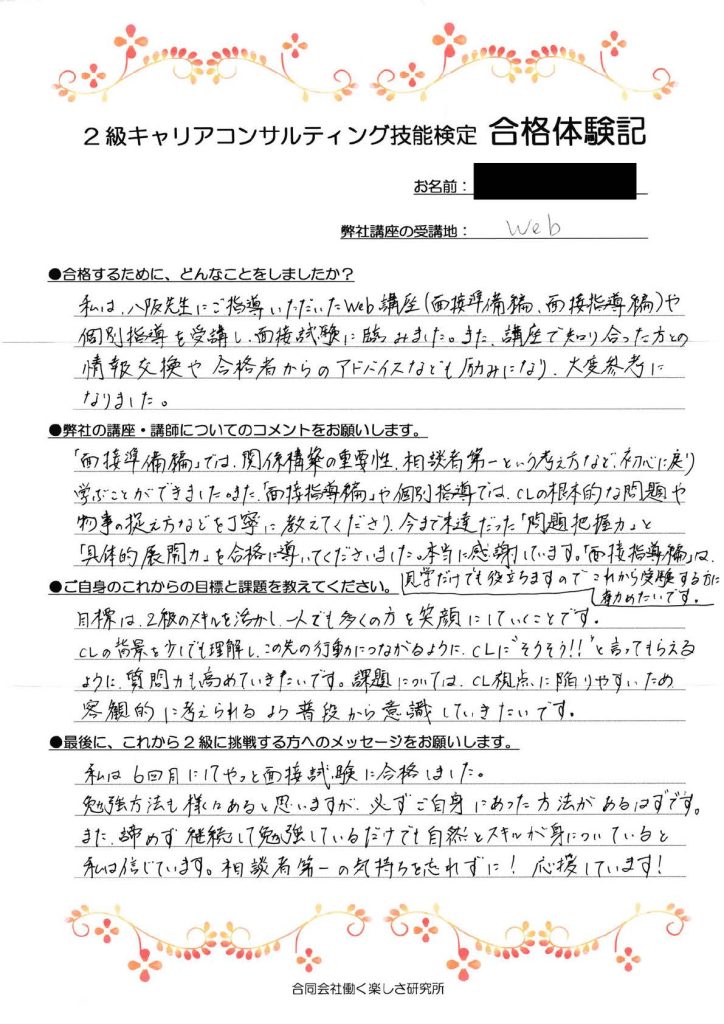 2級キャリアコンサルティング技能検定 合格体験記
お名前：
弊社講座の受講地： Web
●合格するために、どんなことをしましたか？
私は、八阪先生にご指導いただいたWeb講座(面接準備編、面接指導編)や
個別指導を受講し、面接試験に臨みました。また、講座で知り合った方との
情報交換や合格者からのアドバイスなども励みになり、大変参考に
なりました。
●弊社の講座・講師についてのコメントをお願いします。
「面接準備編」では、関係構築の重要性、相談者第一という考え方など、初心に戻り
学ぶことができました。また、「面接指導編」や個別指導では、CLの根本的な問題や
物事の捉え方などを丁寧に教えてくださり、今まで未達だった「問題把握力」と
「具体的展開力」を合格に導いてくださいました。本当に感謝しています。「面接指導編」は、
見学だけでも役立ちますのでこれから受験する方に
勧めたいです。
●ご自身のこれからの目標と課題を教えてください。
目標は、2級のスキルを活かし、一人でも多くの方を笑顔にしていくことです。
CLの背景を少しでも理解し、この先の行動につながるように、CLに"そうそう!!"と言ってもらえる
ように、質問力も高めていきたいです。課題については、CL視点に陥りやすいため
客観的に考えられるよう普段から意識していきたいです。
●最後に、これから2級に挑戦する方へのメッセージをお願いします。
私は6回目にしてやっと面接試験に合格しました。
勉強方法も様々あると思いますが、必ずご自身にあった方法があるはずです。
また、諦めず継続して勉強しているだけでも自然とスキルが身についていると
私は信じています。相談者第一の気持ちを忘れずに！応援しています！
合同会社働く楽しさ研究所